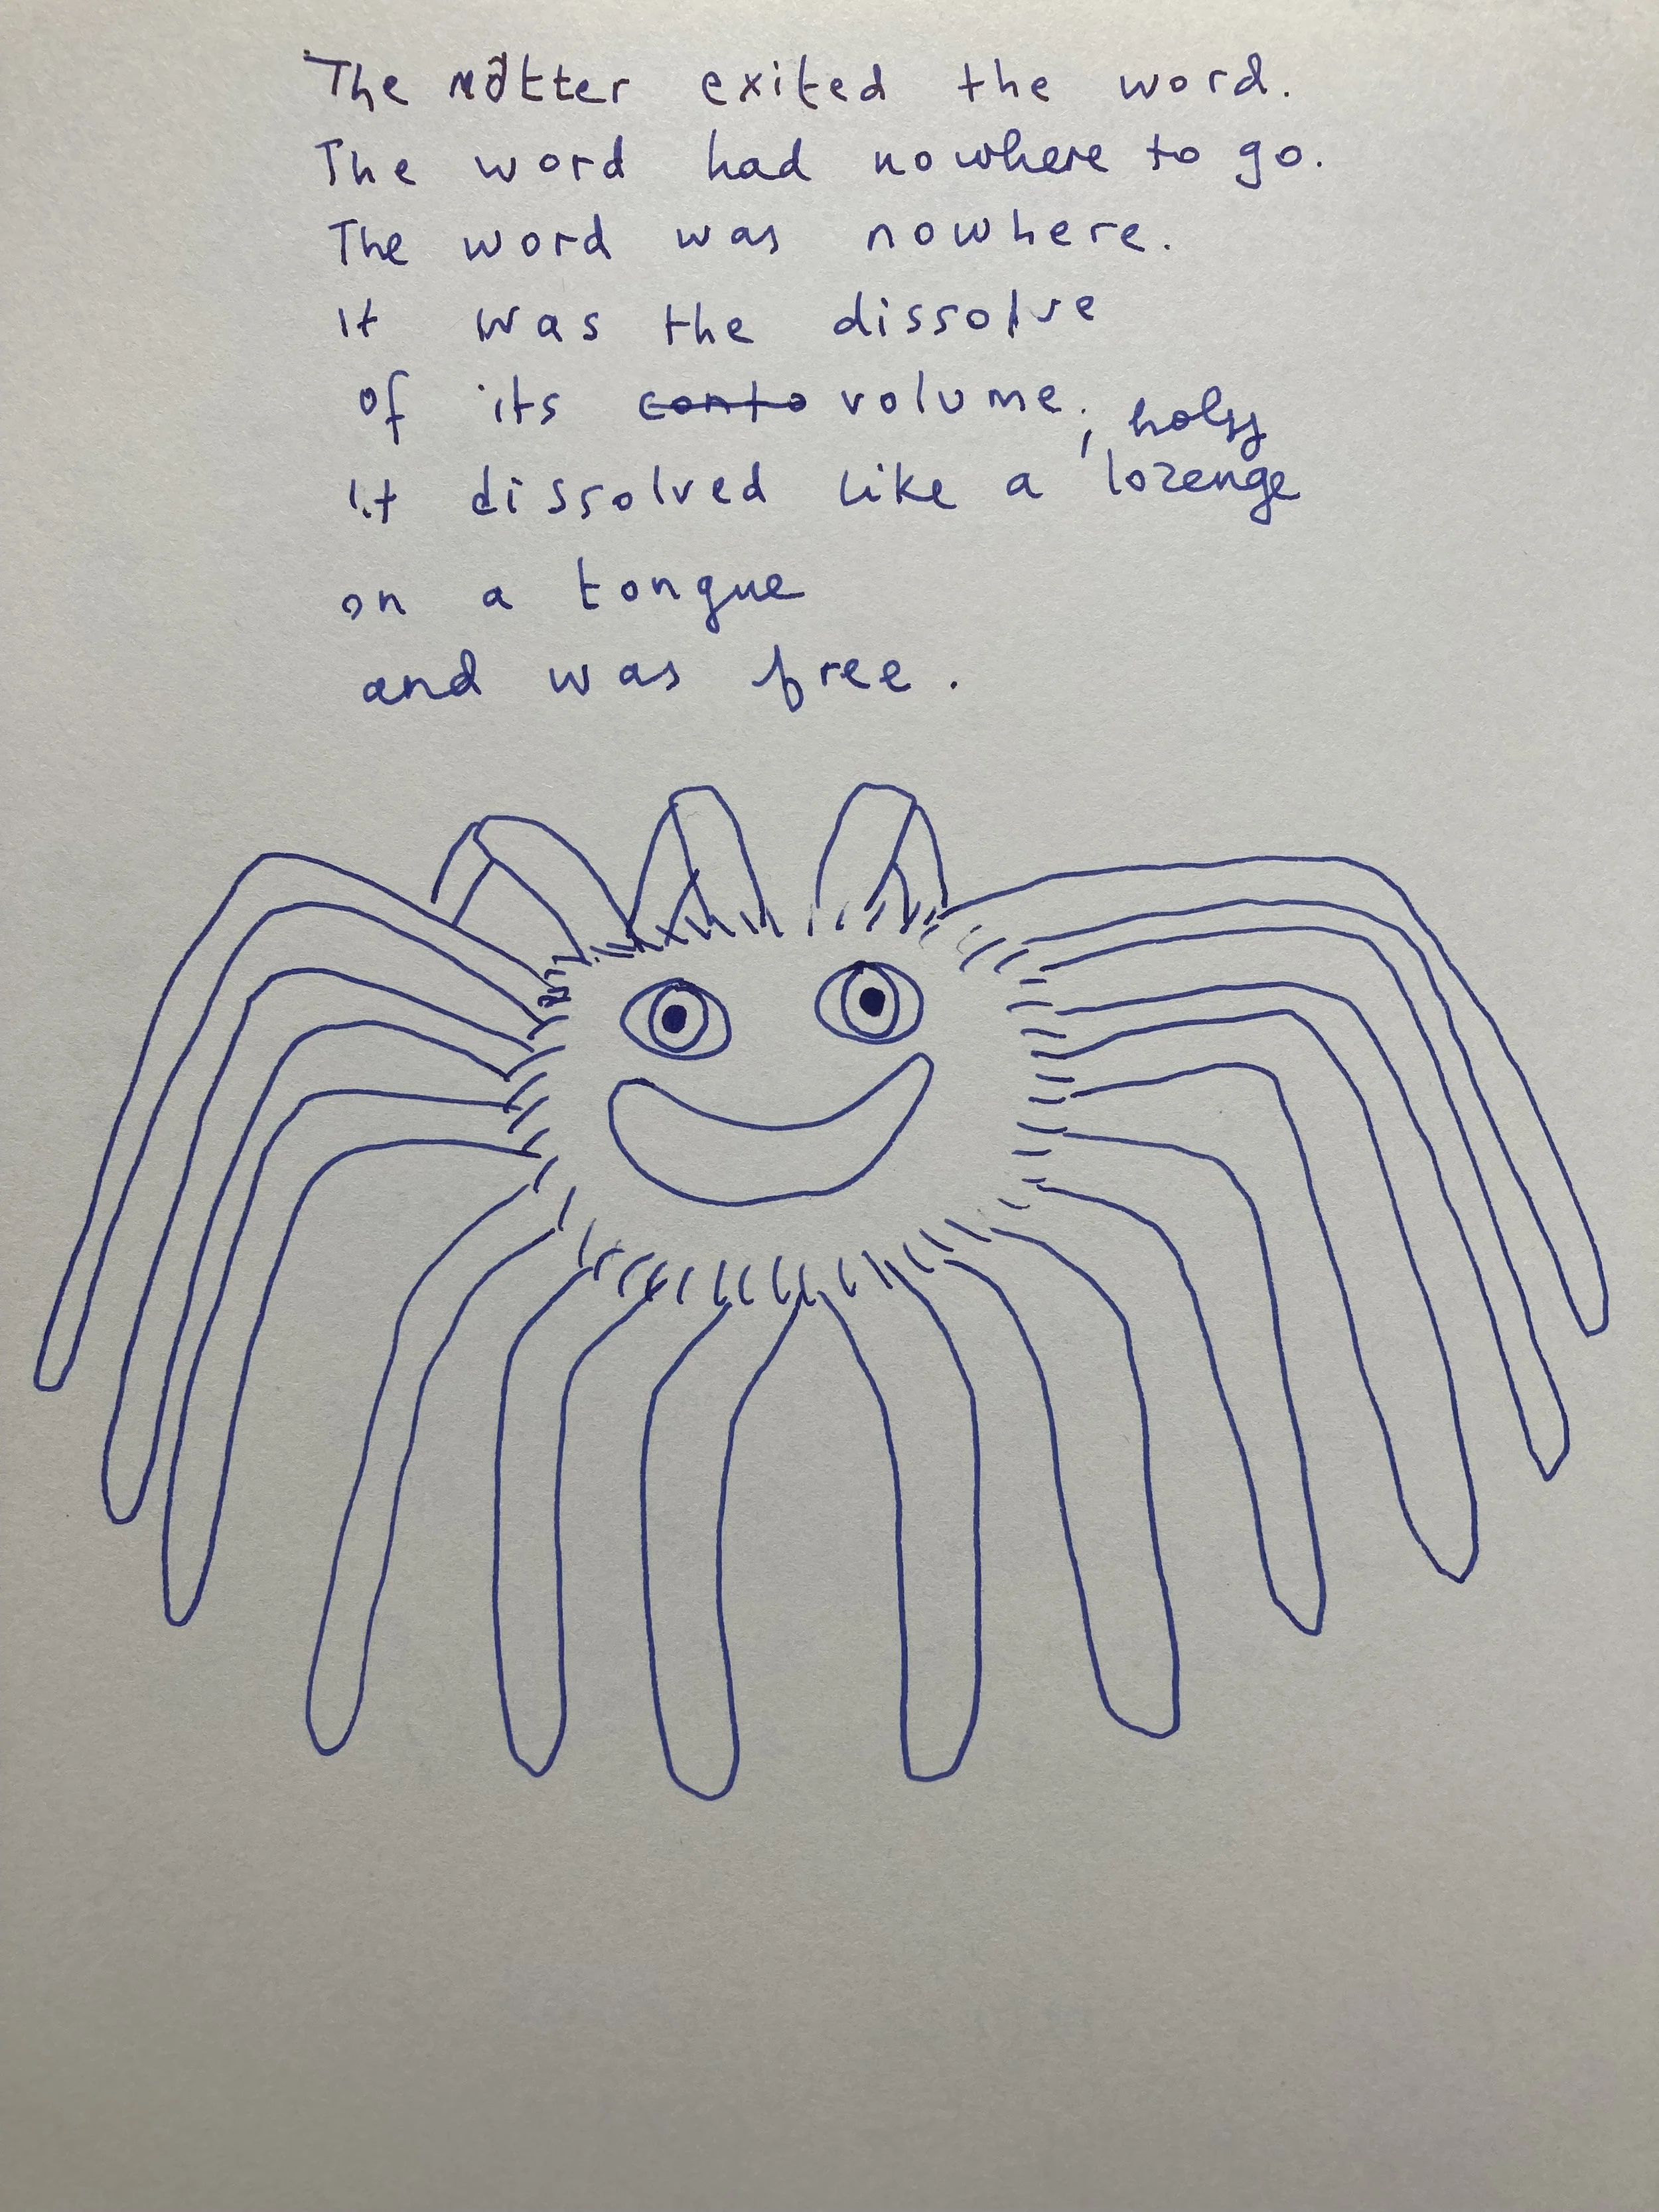 The matter exited the word.
The word had nowhere to go.
The word was nowhere.
It was the dissolve
of its conto volume;
holy
It dissolved like a lozenge
on a tongue
and was free.